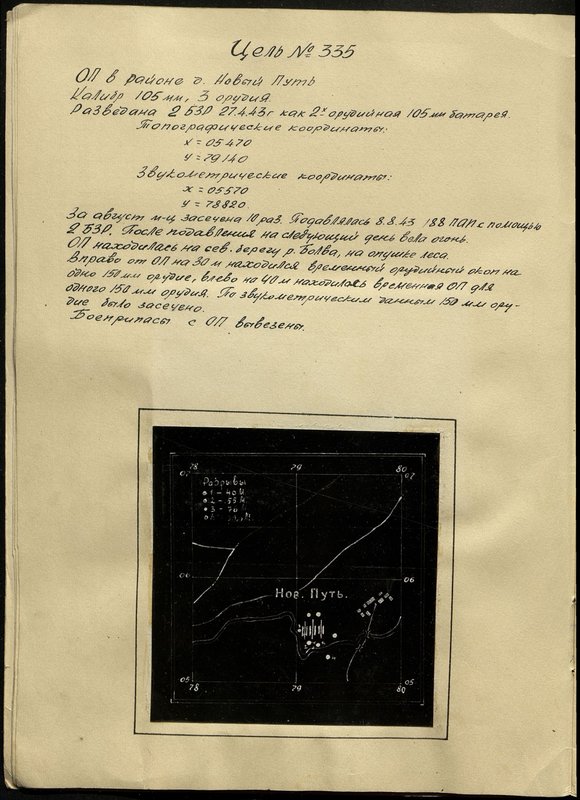 Цель № 335
ОП в районе д. Новый Путь
Калибр 105 мм, 3 орудия.
Разведана 2 БЗР 27.4.43 г как 2х орудийная 105 мм батарея.
Топографические координаты:
x = 05470
y = 79140
Звукометрические координаты:
x = 05570
y = 78820.
За август м-ц засечена 10 раз. Подавлялась 8.8.43 188 ПАП с помощью
2 БЗР. После подавления на следующий день вела огень.
ОП находилась на сев. берегу р. Болва, на опушке леса.
Вправо от ОП на 30 м находился временный орудийный окоп на
одно 150 мм орудие, влево на 40 м находилась временная ОП для
одного 150 мм орудия. По звукометрическим данным 150 мм ору-
дие было засечено.
Боеприпасы с ОП вывезены.
78 79 80
07 07
Разрывы
1 - 40 м
2 - 55 м
3 - 70
06 06
Нов. Путь.
05 05
78 79 80